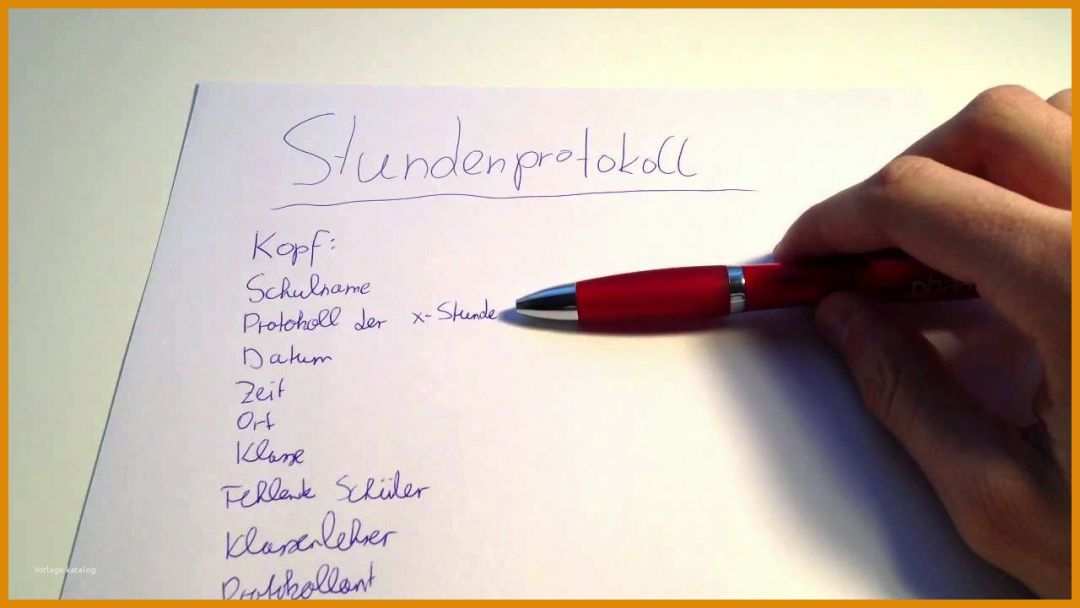 Stundenprotokoll
Kopf:
Schulname
Protokoll der x-Stunde
Datum
Zeit
Ort
Klasse
Fehlende Schüler
Klassenlehrer
Protokollant
Vorlage katalog